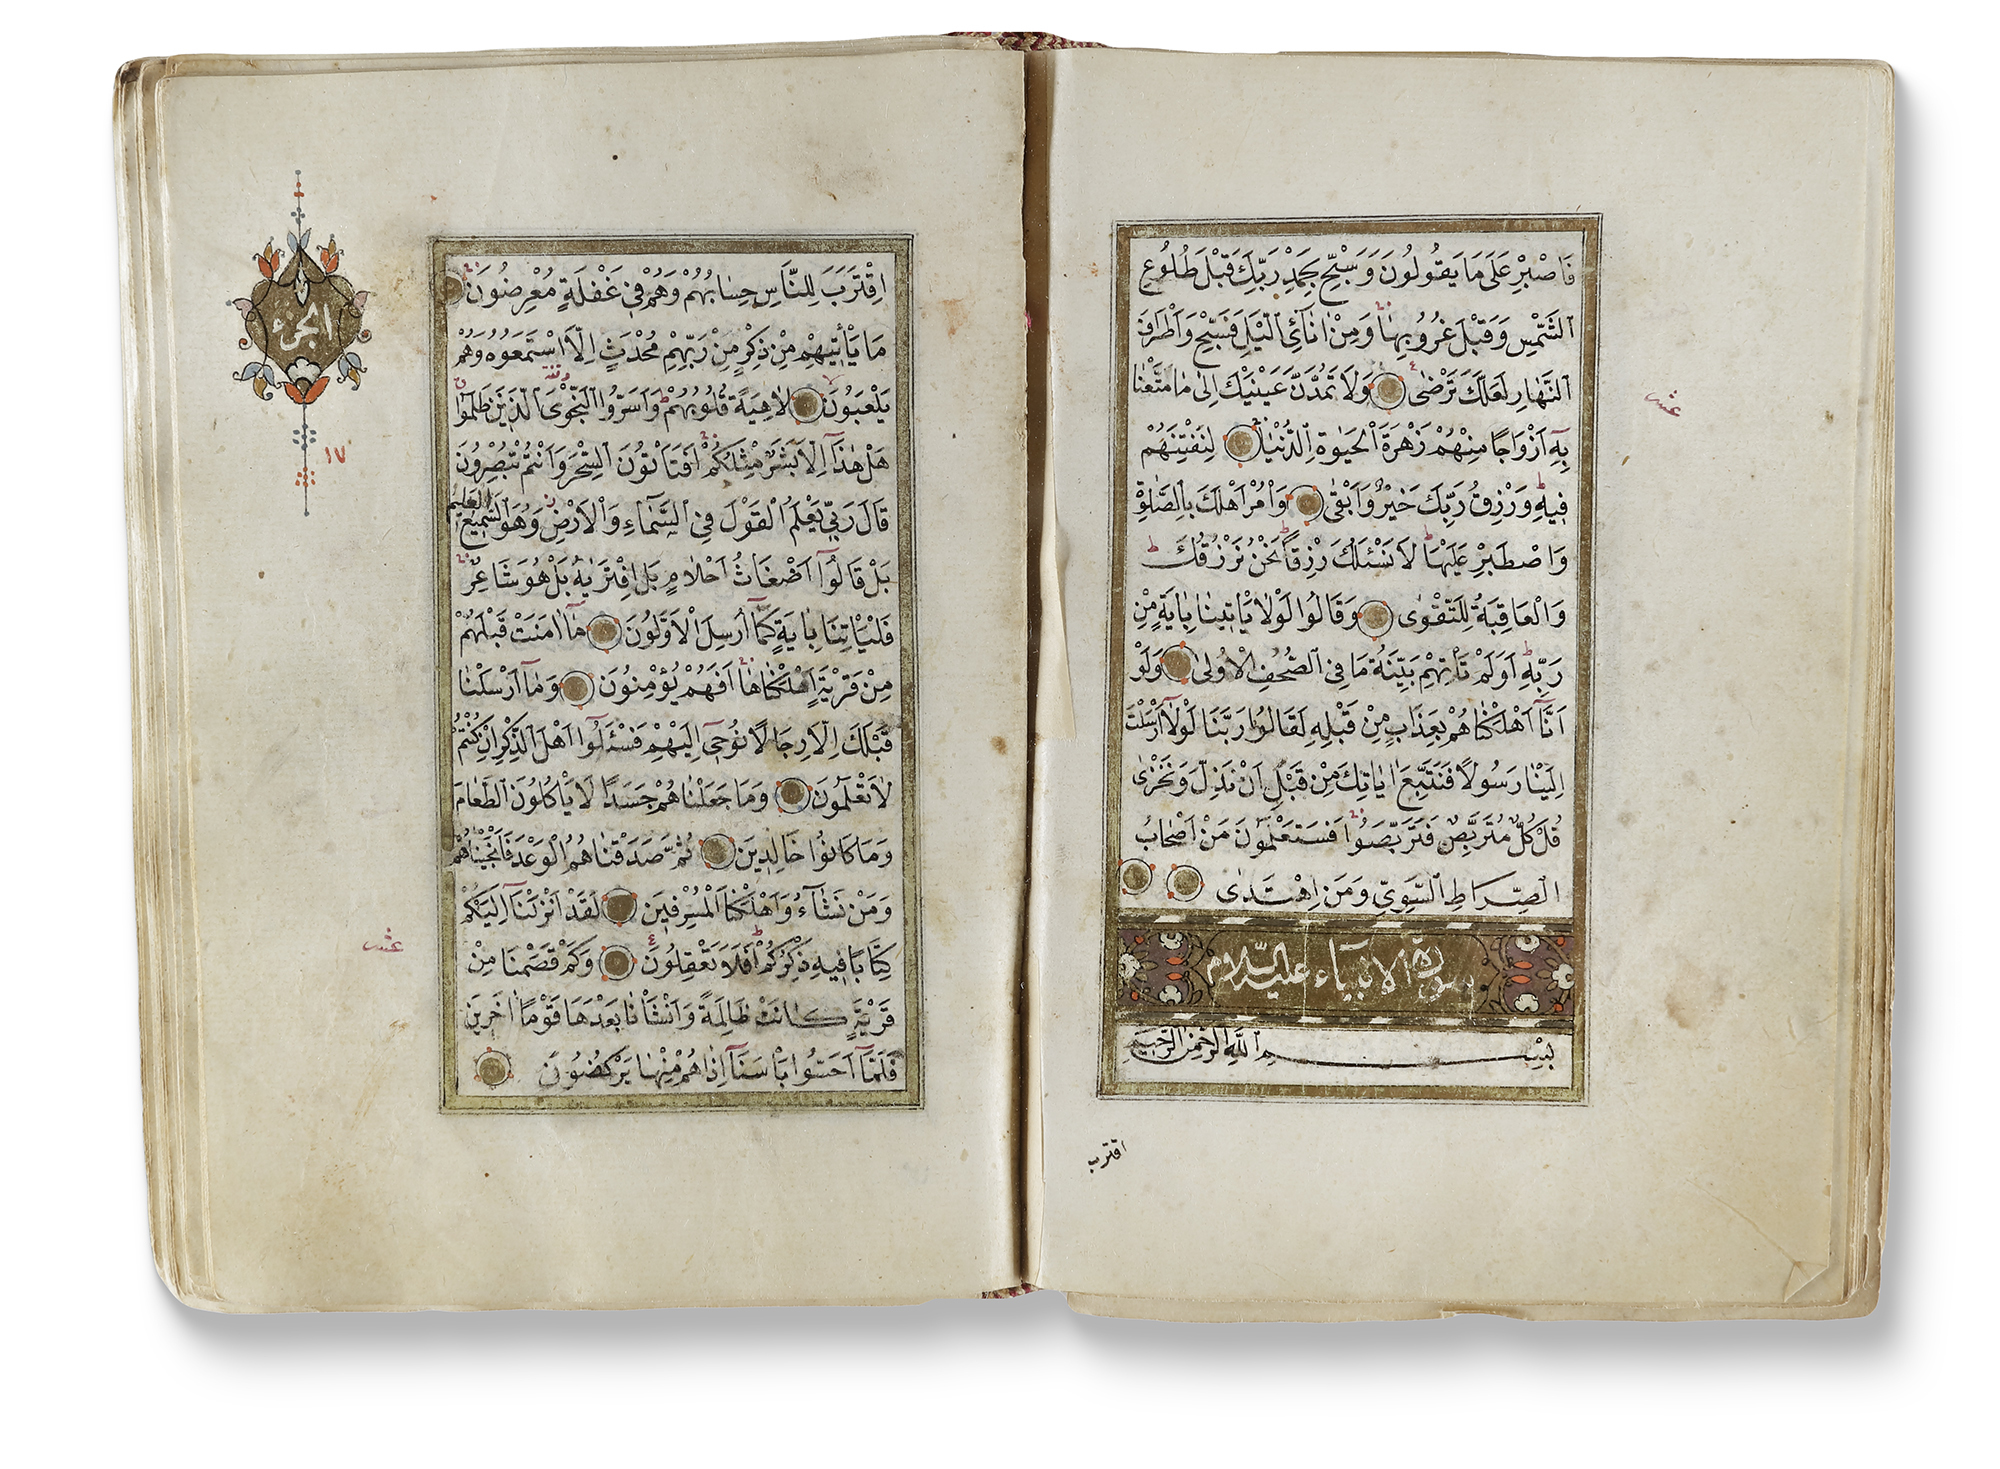 فَاصْبِرْ عَلٰى مَا يَقُولُونَ وَسَبِّحْ بِحَمْدِ رَبِّكَ قَبْلَ طُلُوعِ
الشَّمْسِ وَقَبْلَ غُرُوبِهَا وَمِنْ اٰنَائِ الَّيْلِ فَسَبِّحْ وَاَطْرَافَ
النَّهَارِ لَعَلَّكَ تَرْضٰى وَلَا تَمُدَّنَّ عَيْنَيْكَ اِلٰى مَا مَتَّعْنَا
بِهِ اَزْوَاجًا مِنْهُمْ زَهْرَةَ الْحَيٰوةِ الدُّنْيَا لِنَفْتِنَهُمْ
فِيهِ وَرِزْقُ رَبِّكَ خَيْرٌ وَاَبْقٰى وَاْمُرْ اَهْلَكَ بِالصَّلٰوةِ
وَاصْطَبِرْ عَلَيْهَا لَا نَسْئَلُكَ رِزْقًا نَحْنُ نَرْزُقُكَ
وَالْعَاقِبَةُ لِلتَّقْوٰى وَقَالُوا لَوْلَا يَاْتِينَا بِاٰيَةٍ مِنْ
رَبِّهِ اَوَلَمْ تَاْتِهِمْ بَيِّنَةُ مَا فِي الصُّحُفِ الْاُولٰى وَلَوْ
اَنَّا اَهْلَكْنَاهُمْ بِعَذَابٍ مِنْ قَبْلِهِ لَقَالُوا رَبَّنَا لَوْلَا اَرْسَلْتَ
اِلَيْنَا رَسُولًا فَنَتَّبِعَ اٰيَاتِكَ مِنْ قَبْلِ اَنْ نَذِلَّ وَنَخْزٰى
قُلْ كُلٌّ مُتَرَبِّصٌ فَتَرَبَّصُوا فَسَتَعْلَمُونَ مَنْ اَصْحَابُ
الصِّرَاطِ السَّوِيِّ وَمَنِ اهْتَدٰى
سورة الانبياء عليه السلام
بِسْمِ اللّٰهِ الرَّحْمٰنِ الرَّحِيمِ
اقترب
عشر
اِقْتَرَبَ لِلنَّاسِ حِسَابُهُمْ وَهُمْ فِي غَفْلَةٍ مُعْرِضُونَ
مَا يَاْتِيهِمْ مِنْ ذِكْرٍ مِنْ رَبِّهِمْ مُحْدَثٍ اِلَّا اسْتَمَعُوهُ وَهُمْ
يَلْعَبُونَ لَاهِيَةً قُلُوبُهُمْ وَاَسَرُّوا النَّجْوَى الَّذِينَ ظَلَمُوا
هَلْ هٰذَا اِلَّا بَشَرٌ مِثْلُكُمْ اَفَتَاْتُونَ السِّحْرَ وَاَنْتُمْ تُبْصِرُونَ
قَالَ رَبِّي يَعْلَمُ الْقَوْلَ فِي السَّمَاءِ وَالْاَرْضِ وَهُوَ السَّمِيعُ الْعَلِيمُ
بَلْ قَالُوا اَضْغَاثُ اَحْلَامٍ بَلِ افْتَرٰيهُ بَلْ هُوَ شَاعِرٌ
فَلْيَاْتِنَا بِاٰيَةٍ كَمَا اُرْسِلَ الْاَوَّلُونَ مَا اٰمَنَتْ قَبْلَهُمْ
مِنْ قَرْيَةٍ اَهْلَكْنَاهَا اَفَهُمْ يُؤْمِنُونَ وَمَا اَرْسَلْنَا
قَبْلَكَ اِلَّا رِجَالًا نُوحِي اِلَيْهِمْ فَسْئَلُوا اَهْلَ الذِّكْرِ اِنْ كُنْتُمْ
لَا تَعْلَمُونَ وَمَا جَعَلْنَاهُمْ جَسَدًا لَا يَاْكُلُونَ الطَّعَامَ
وَمَا كَانُوا خَالِدِينَ ثُمَّ صَدَقْنَاهُمُ الْوَعْدَ فَاَنْجَيْنَاهُمْ
وَمَنْ نَشَاءُ وَاَهْلَكْنَا الْمُسْرِفِينَ لَقَدْ اَنْزَلْنَا اِلَيْكُمْ
كِتَابًا فِيهِ ذِكْرُكُمْ اَفَلَا تَعْقِلُونَ وَكَمْ قَصَمْنَا مِنْ
قَرْيَةٍ كَانَتْ ظَالِمَةً وَاَنْشَاْنَا بَعْدَهَا قَوْمًا اٰخَرِينَ
فَلَمَّا اَحَسُّوا بَاْسَنَا اِذَا هُمْ مِنْهَا يَرْكُضُونَ
الجزء
١٧
عشر